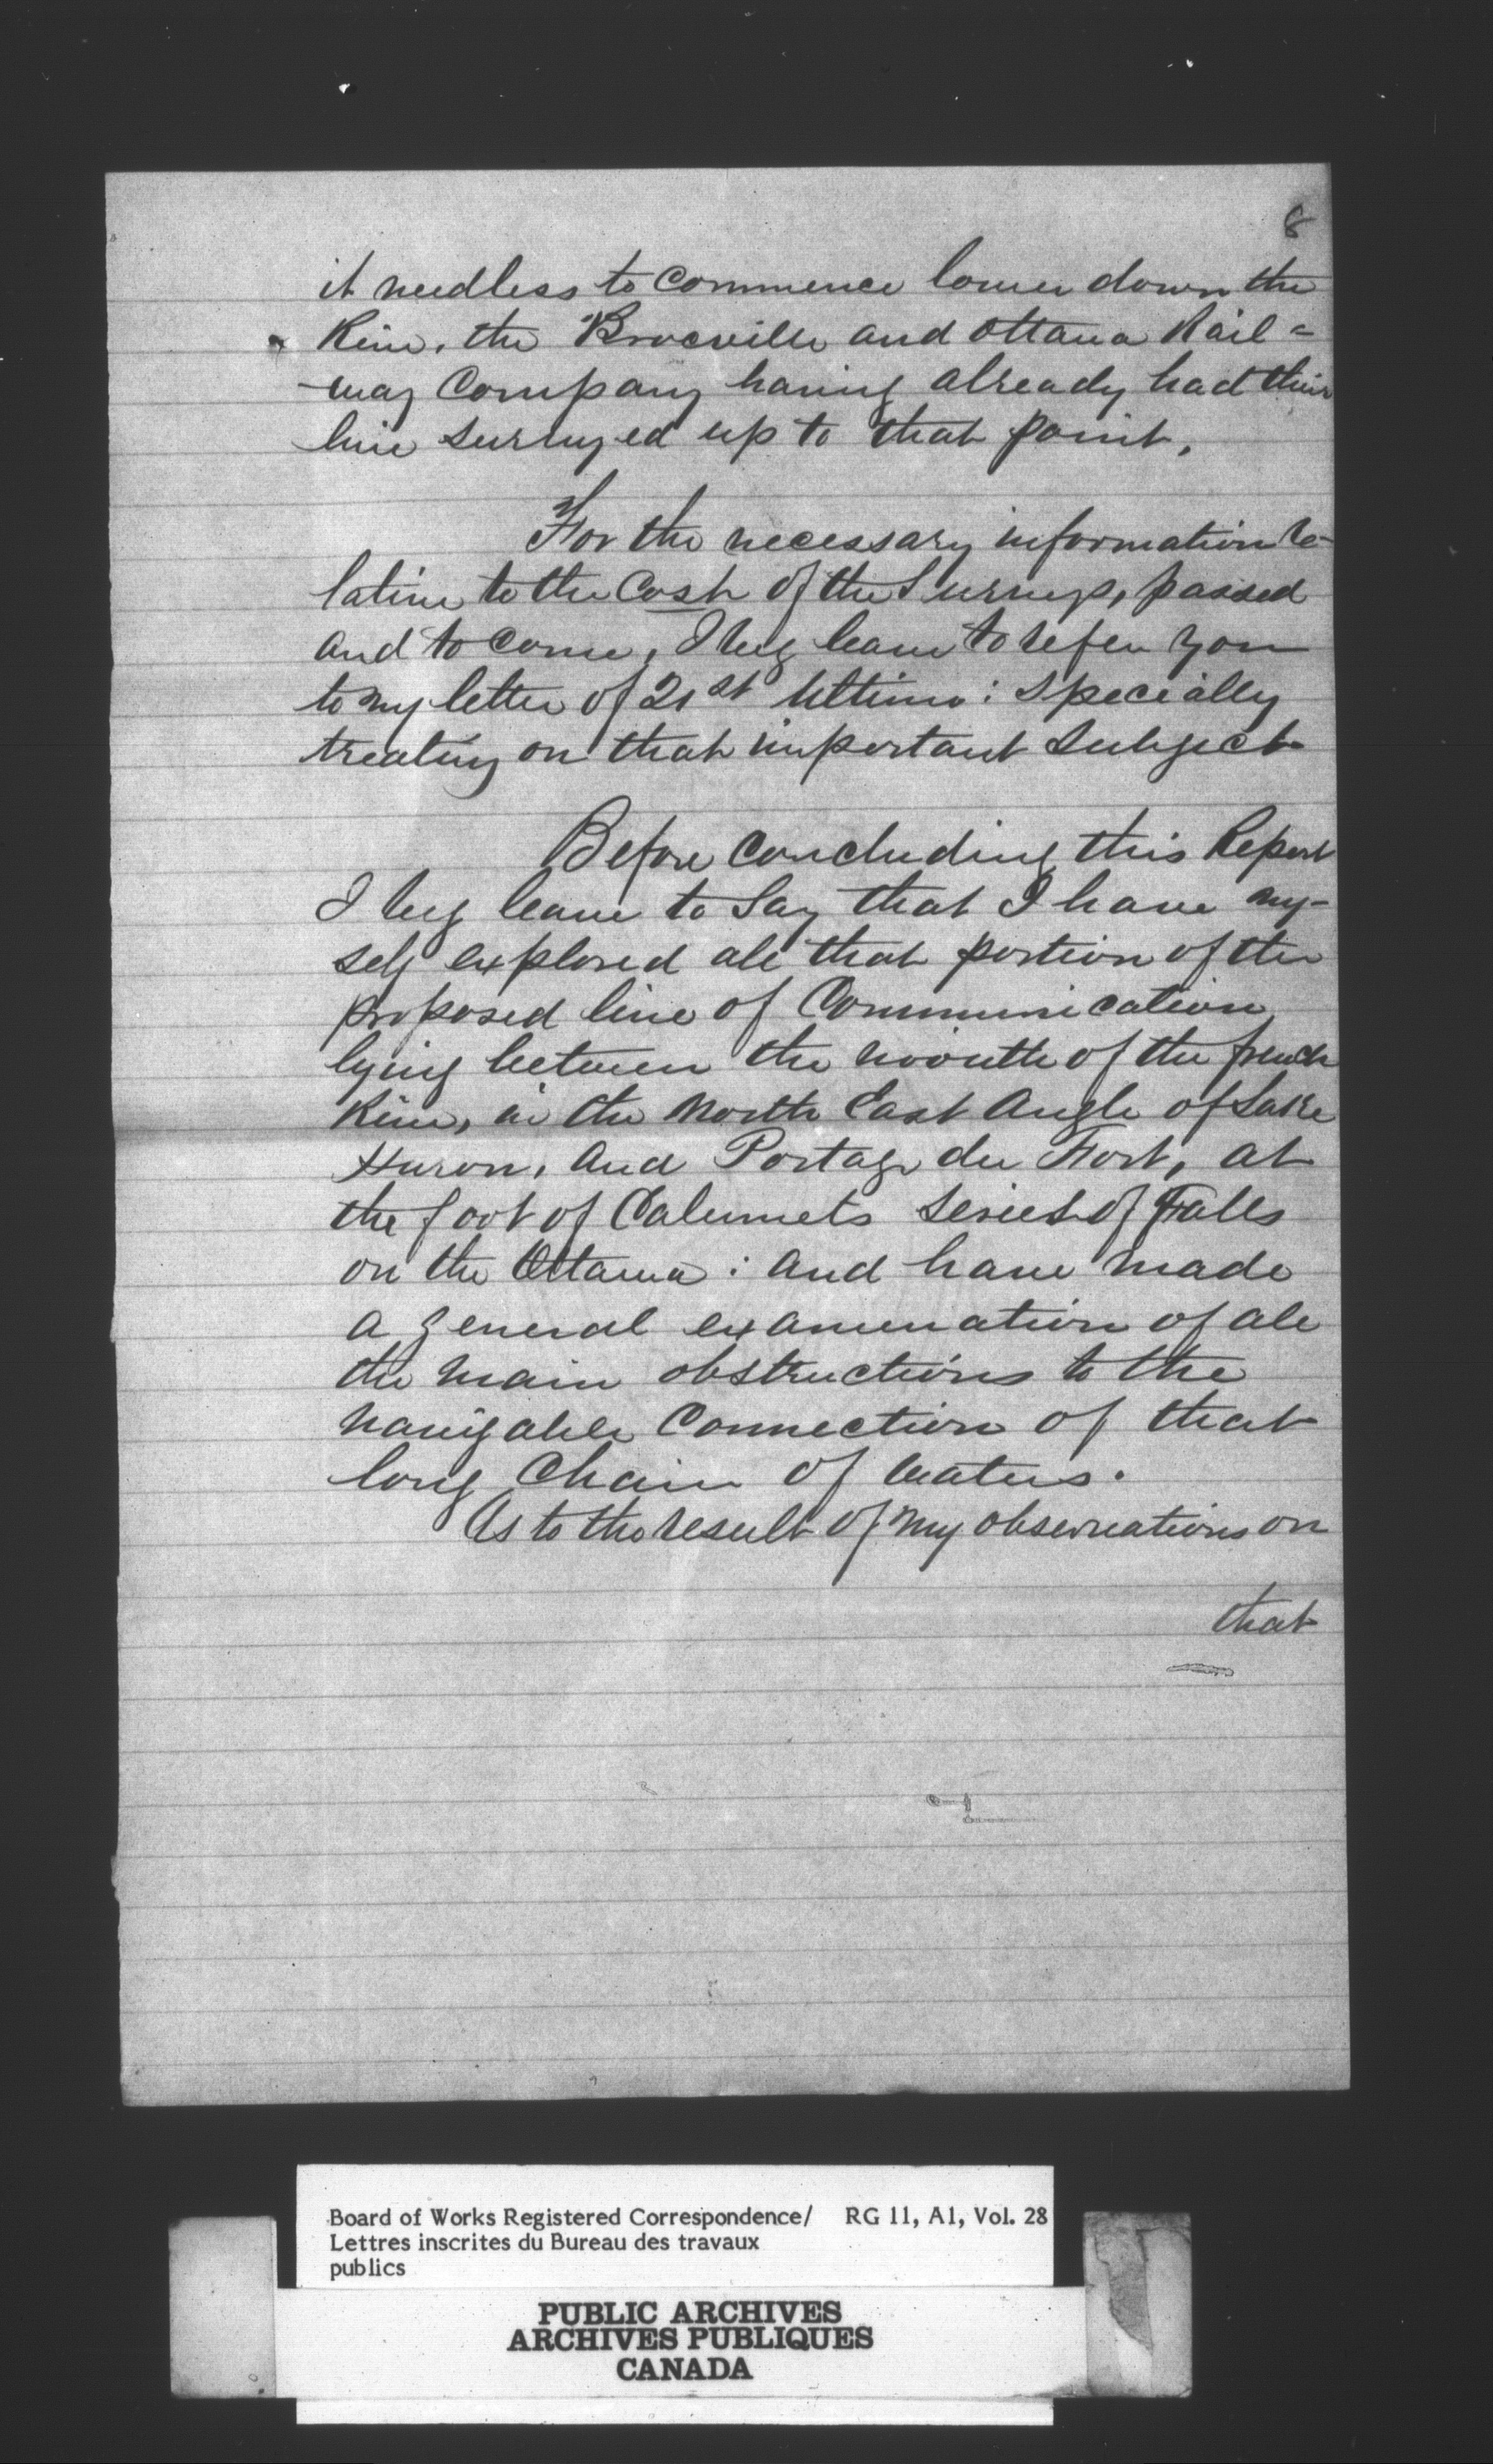 8
it needless to Commence lower down the
River. the Brocville and Ottawa Rail=
way Company having already had their
line surveyed up to that point.
For the necessary information re-
lative to the Cost of the Survey, passed
and to come, I beg leave to refer you
to my letter of 21st Ultimo: Specially
treating on that important Subject
Before Concluding this Report
I beg leave to Say that I have my-
self explored all that portion of the
proposed line of Communication
lying between the mouth of the french
River, in the North East Angle of Lake
Huron, and Portage du Fort, at
the foot of Calumets Series of Falls
on the Ottawa: and have made
a general examination of all
the main obstructions to the
navigable Connection of that
long Chain of waters.
As to the result of my observations on
that
Board of Works Registered Correspondence/ RG 11, A1, Vol. 28
Lettres inscrites du Bureau des travaux
publics
PUBLIC ARCHIVES
ARCHIVES PUBLIQUES
CANADA